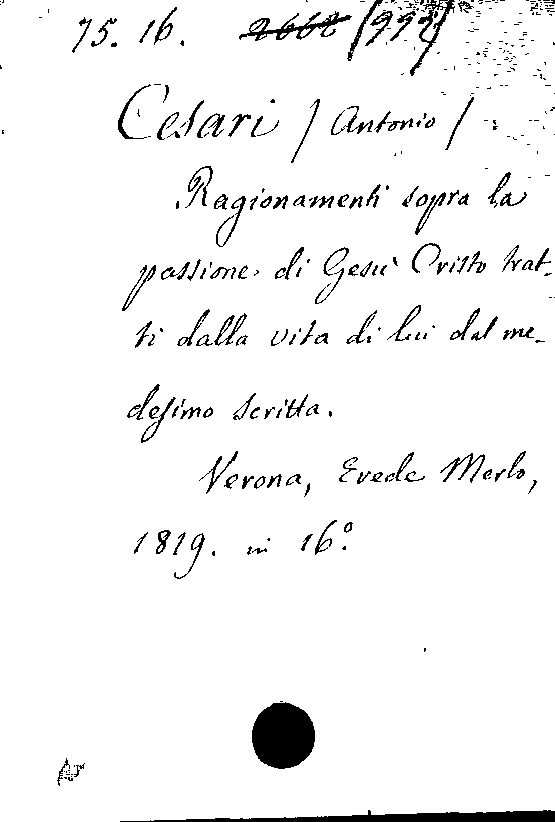 75. 16. 2662 (992)
Cesari / Antonio /
Ragionamenti sopra la
passione di Gesù Cristo trat-
ti dalla vita di lui dal me-
desimo scritta.
Verona, Erede Merlo,
1819. in 16.º